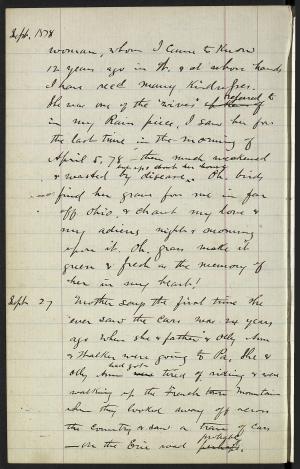 Sept. 1878
woman, whom I came to know
12 years ago in W. & at whose hands
I have recd many kindnesses.
She was one of the "wives" referred to
in my Rain piece. I saw her for
the last time in the morning of
April 5, 78 — then much weakened
& wasted by disease. Oh birds
find her grave for me in far
off Ohio & chant my love &
my adieus night & morning
upon it. Oh, grass make it
green & fresh as the memory of
her in my heart!
Sept. 27 Mother says the first time she
ever saw the cars was 24 years
ago when she & father & Olly Ann
& Walker were going to Pa. She &
Olly Ann had got tired of riding & were
walking up the French town Mountain
when they looked away off across
the country & saw a train of cars
— on the Erie road probably